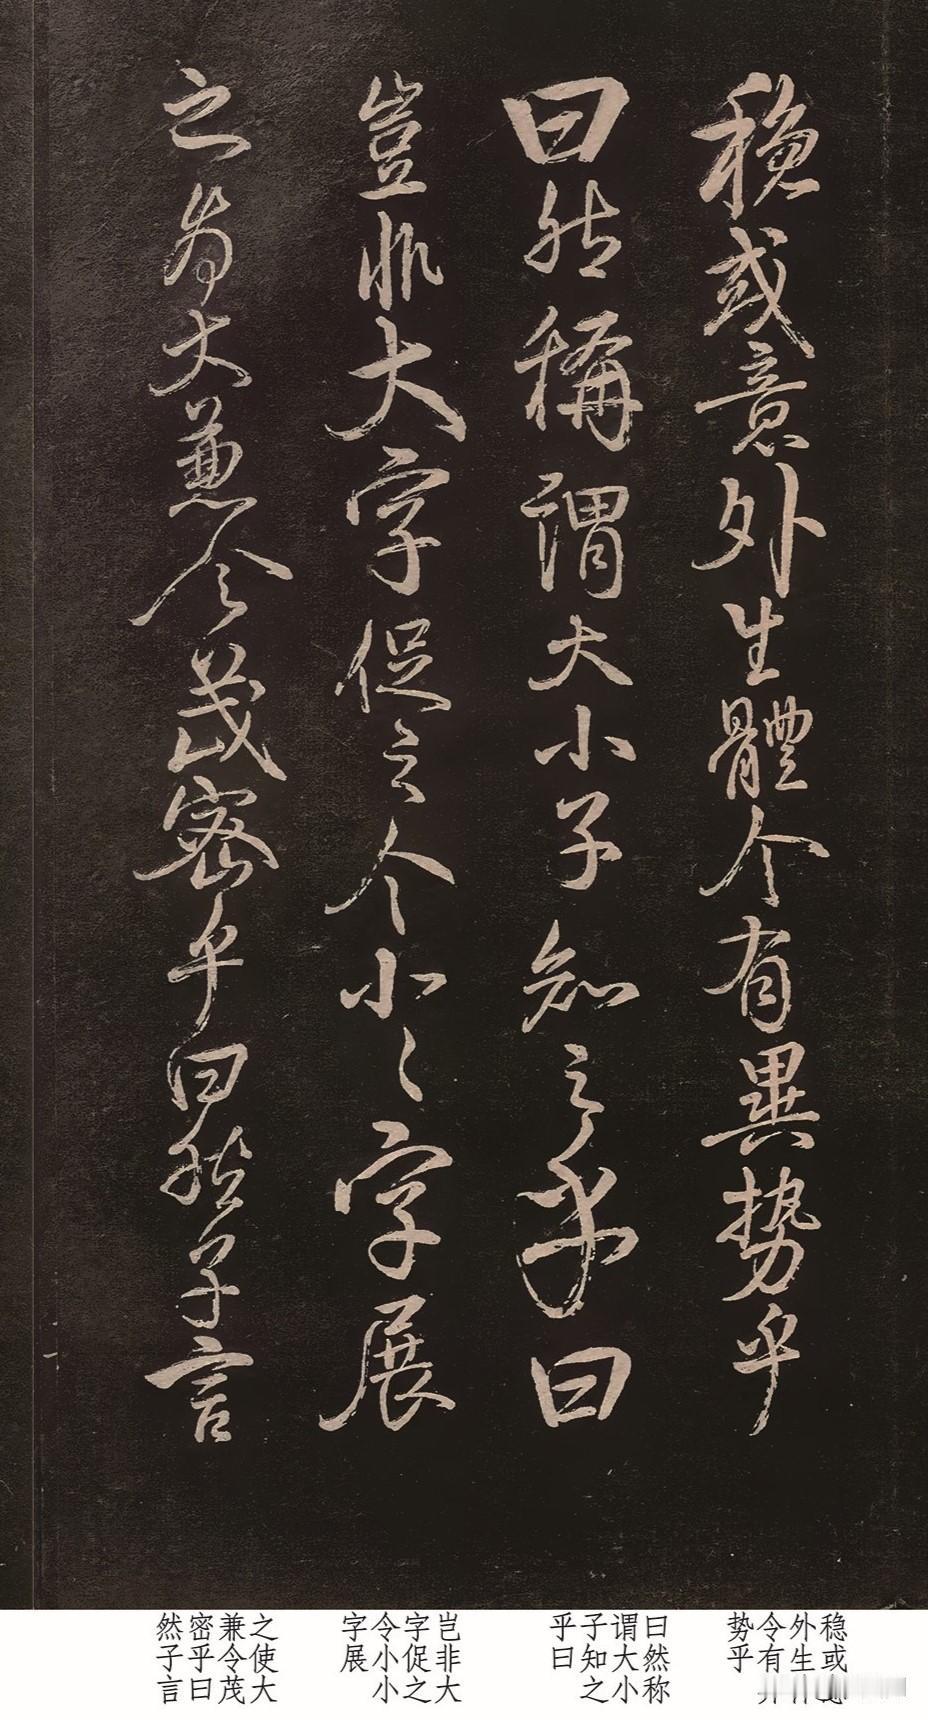 穩或意外生體令有異势乎
曰然稱謂大小子知之乎曰
豈非大字促之令小〻字展
之為大兼令茂密乎曰然子言
稳或
外生
令有
势乎
曰然称
谓大小
子知之
乎曰
岂非大
字促之
令小小
字展
之使大
兼令茂
密乎曰
然子言